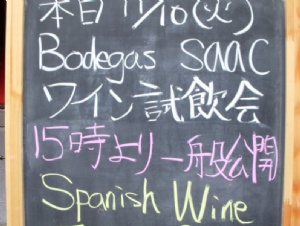 本日 11/10(火)
Bodegas SAAC
ワイン試飲会
15時より一般公開
Spanish Wine